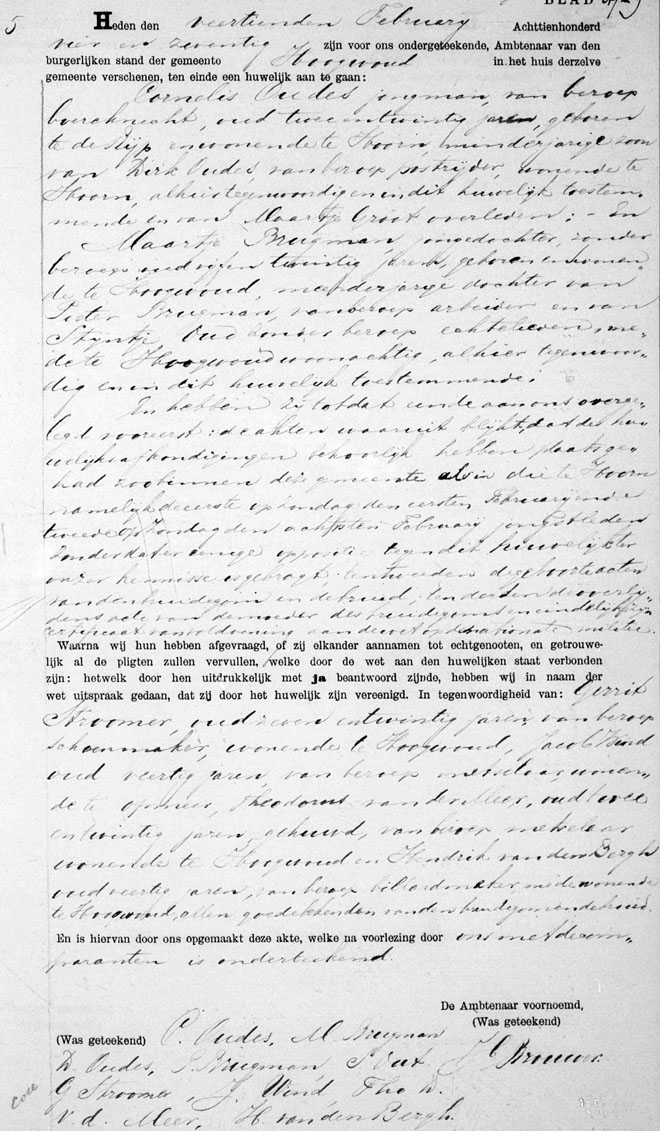 BLAD
5 Heden den veertienden February Achttienhonderd
vier en zeventig zijn voor ons ondergeteekende, Ambtenaar van den
burgerlijken stand der gemeente Hoogwoud in het huis derzelve
gemeente verschenen, ten einde een huwelijk aan te gaan:
Cornelis Oudes jongman, van beroep
boerenknecht, oud twee en twintig jaren, geboren
te de Rijp en wonende te Hoorn, minderjarige zoon
van Dirk Oudes, van beroep postrijder, wonende te
Hoorn, alhier tegenwoordig en in dit huwelijk toestem„
mende en van Maartje Groot overleden; – En
Maartje Brugman, jongedochter, zonder
beroep oud vijf en twintig jaren, geboren en wonen„
de te Hoogwoud, meerderjarige dochter van
Pieter Brugman, van beroep arbeider en van
Styntje Oud zonder beroep echtelieven, me„
de te Hoogwoud woonachtig, alhier tegenwoor„
dig en in dit huwelijk toestemmende;
En hebben zij tot dat einde aan ons overge„
legd vooreerst: de akten waaruit blijkt, dat des hu„
welijks afkondigingen behoorlijk hebben plaats ge„
had zoo binnen deze gemeente als in die te Hoorn
namelijk de eerste op Zondag den eersten February en de
tweede op Zondag den achtsten February jongstleden
zonder dat er eenige oppositie tegen dit huwelijk ter
onzer kennisse is gebragt. ten tweeden de geboorteacten
van den bruidegom en de bruid, ten derden de overlij„
dens acte van de moeder des bruidegoms en eindelijk zijn
certificaat van voldoening aan de wet op de nationale militie.
Waarna wij hun hebben afgevraagd, of zij elkander aannamen tot echtgenooten, en getrouwe-
lijk al de pligten zullen vervullen, welke door de wet aan den huwelijken staat verbonden
zijn: hetwelk door hen uitdrukkelijk met ja beantwoord zijnde, hebben wij in naam der
wet uitspraak gedaan, dat zij door het huwelijk zijn vereenigd. In tegenwoordigheid van: Gerrit
Stroomer, oud zeven en twintig jaren, van beroep
schoenmaker, wonende te Hoogwoud, Jacob Wind
oud veertig jaren, van beroep metselaar wonen„
de te Opmeer, Theodorus van der Meer, oud twee
en twintig jaren, gehuwd, van beroep metselaar
wonende te Hoogwoud en Hendrik van den Bergh
oud veertig jaren, van beroep billardmaker, mede wonende
te Hoogwoud, allen goede bekenden van den bruidegom en de bruid.
En is hiervan door ons opgemaakt deze akte, welke na voorlezing door ons met de com„
paranten is onderteekend.
De Ambtenaar voornoemd,
(Was geteekend)
(Was geteekend) C. Oudes, M. Brugman
D. Oudes, P. Brugman, S Oud
G Stroomer, J. Wind, Theo d.
v. d. Meer, H. van den Bergh.